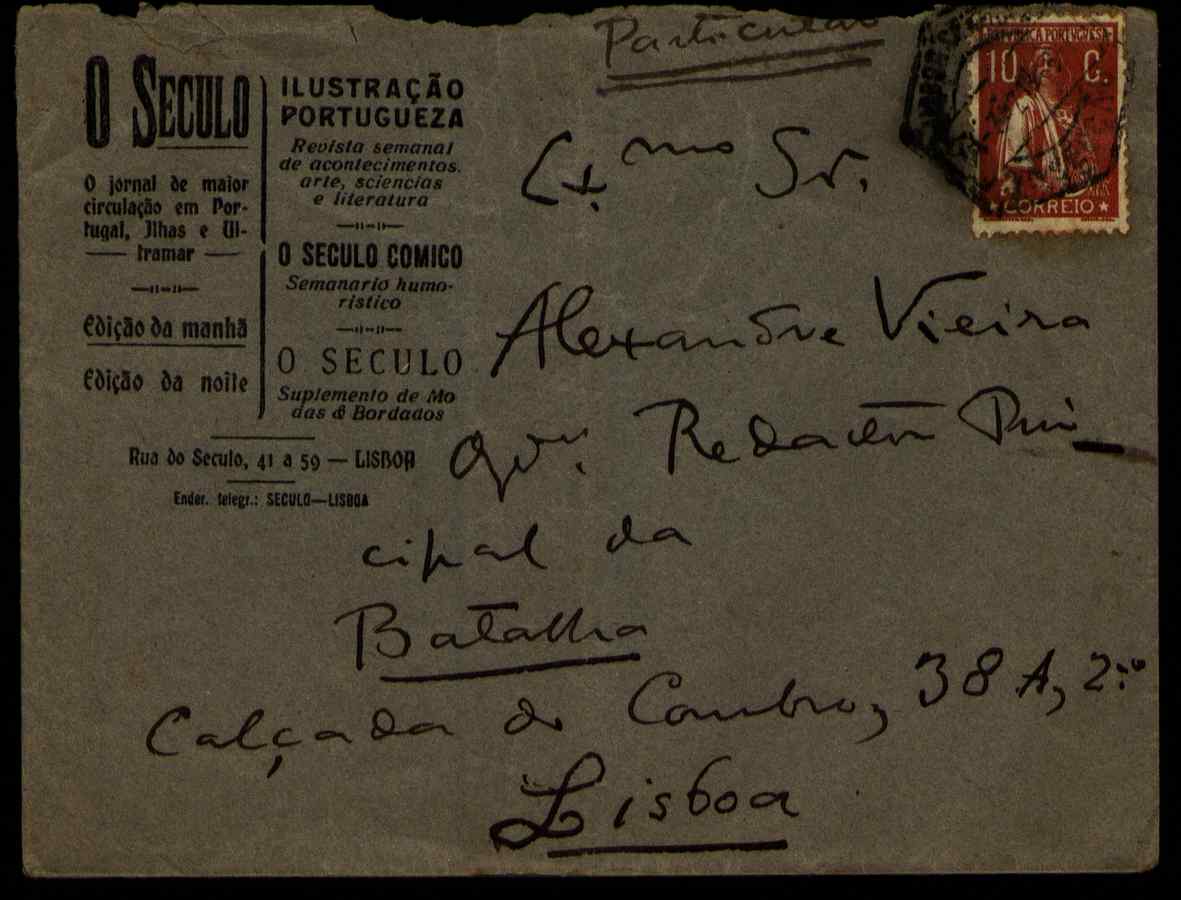 Particular
O SECULO
O jornal de maior
circulação em Por-
tugal, Ilhas e Ul-
tramar
Edição da manhã
Edição da noite
ILUSTRAÇÃO
PORTUGUEZA
Revista semanal
de acontecimentos.
arte, sciencias
e literatura
O SECULO COMICO
Semanario humo-
ristico
O SECULO
Suplemento de Mo
das & Bordados
Rua do Seculo, 41 a 59 — LISBOA
Ender. telegr.: SECULO—LISBOA
REPUBLICA PORTUGUESA
10 C.
CORREIO
Ex.mo Sr.
Alexandre Vieira
Redactor Prin
cipal da
Batalha
Calçada do Combro, 38 A, 2.º
Lisboa